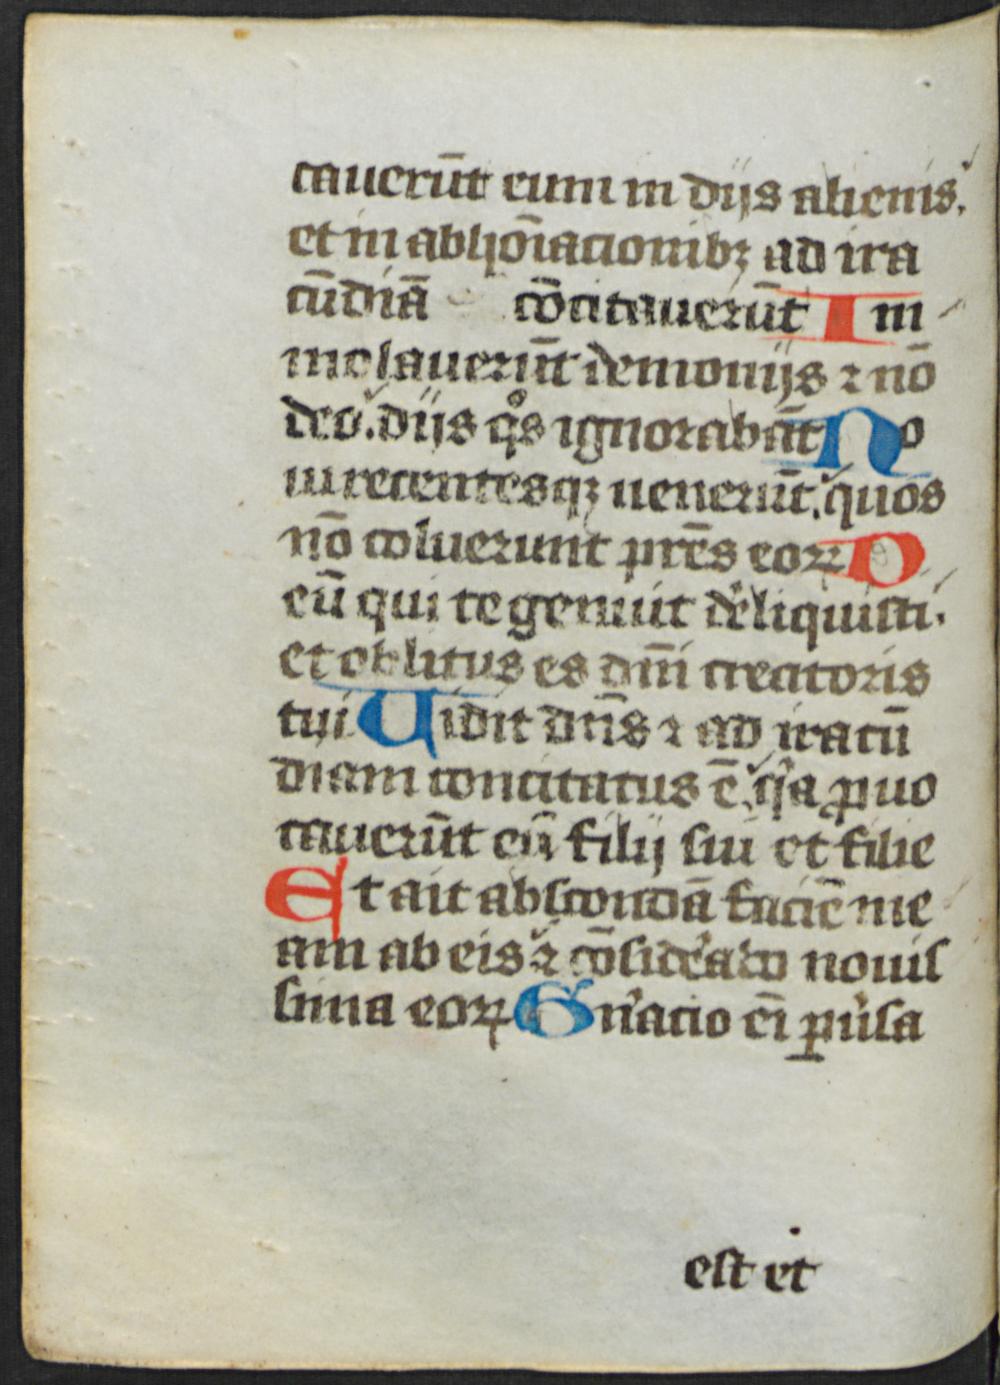 cauerūt eum in dijs alienis.
et in abhōiacionibꝫ ad ira
cūdiā cōcitauerūt Im
molauerūt demonijs ⁊ nō
deo. dijs qͦs ignorabāt No
ui recentesqꝫ uenerūt. quos
nō coluerunt pr̄es eoꝝ D
eū qui te genuit d'liquisti.
et oblitus es dm̄i creatoris
tui Uidit dn̄s ⁊ ad iracū
diam concitatus ē qͥa ꝓuo
cauerūt eū filij sui et filie
Et ait abscondā faciē me
am ab eis ⁊ cōsid'abo nouis
sima eoꝝ Gn'acio em̄ ꝑu'sa
est et